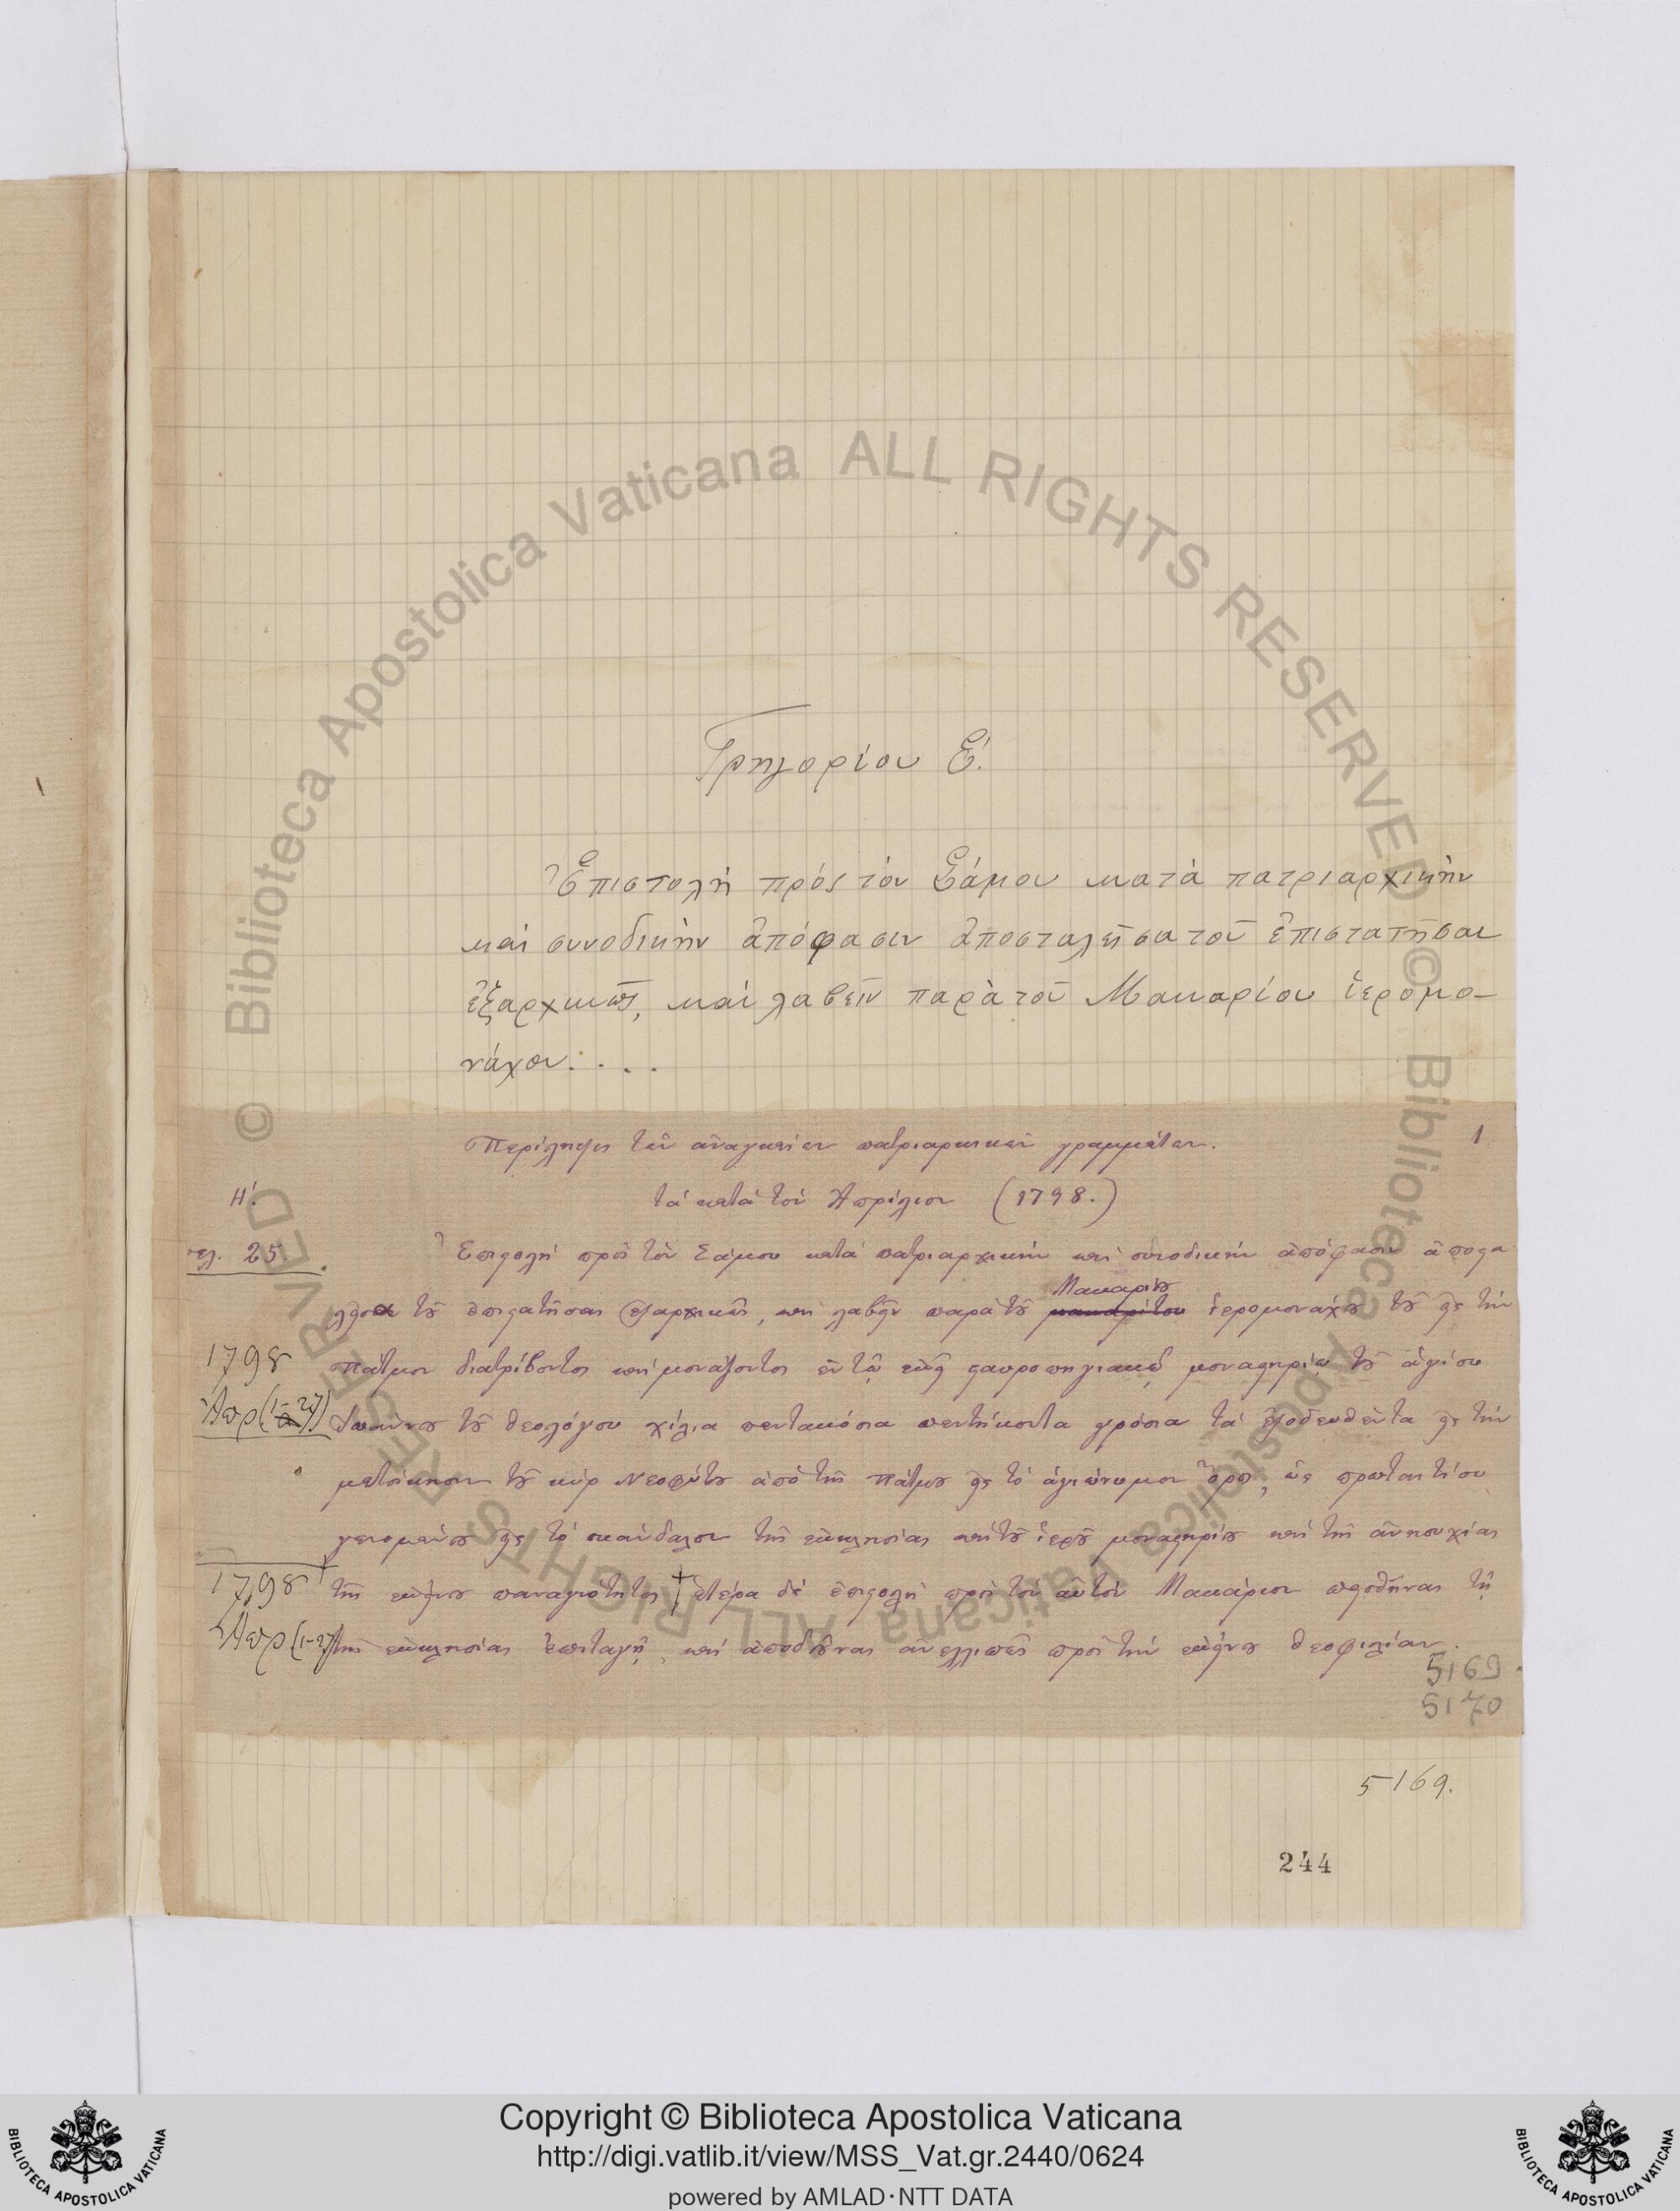 Γρηγορίου Ε΄.
Ἐπιστολὴ πρὸς τὸν Σάμου κατὰ πατριαρχικὴν
καὶ συνοδικὴν ἀπόφασιν ἀποσταλεῖσα τοῦ ἐπιστατῆσαι
ἐξαρχικῶς, καὶ λαβεῖν παρὰ τοῦ Μακαρίου ἱερομο-
νάχου. . . .
Περίληψις τῶν ἀναγκαίων πατριαρχικῶν γραμμάτων. 1
Η΄. τὰ κατὰ τὸν Ἀπρίλιον (1798.)
σελ. 25. Ἐπιστολὴ πρὸς τὸν Σάμου κατὰ πατριαρχικὴν καὶ συνοδικὴν ἀπόφασιν ἀποστα
Μακαρίου
λεῖσα τοῦ ἐπιστατῆσαι ἐξαρχικῶς, καὶ λαβεῖν παρὰ τοῦ ἱερομονάχου τοῦ εἰς τὴν
1798 Πάτμον διατρίβοντος καὶ μονάζοντος ἐν τῷ ἐκεῖσε σταυροπηγιακῷ μοναστηρίῳ τοῦ ἁγίου
Ἀπρ(1-27) Ἰωάννου τοῦ θεολόγου χίλια πεντακόσια πεντήκοντα γρόσια τὰ ἐξοδευθέντα εἰς τὴν
μετοίκησιν τοῦ κὺρ Νεοφύτου ἀπὸ τῆς Πάτμου εἰς τὸ ἁγιώνυμον Ὄρος, ὡς πρωταιτίου
γενομένου εἰς τὸ σκάνδαλον τῆς ἐκκλησίας καὶ τοῦ ἱεροῦ μοναστηρίου καὶ τῆς ἀνησυχίας
1798 † τῆς ἐκείνου παναγιότητος † ἑτέρα δὲ ἐπιστολὴ πρὸς τὸν αὐτὸν Μακάριον πεισθῆναι τῇ
Ἀπρ(1-27) τῆς ἐκκλησίας ἐπιταγῇ, καὶ ἀποδοῦναι ἀνελλιπῶς πρὸς τὴν ἐκείνου θεοφιλίαν.
5169.
5170
5169.
244
© Biblioteca Apostolica Vaticana ALL RIGHTS RESERVED © Biblioteca Apostolica Vaticana ALL RIGHTS RESERVED
BIBLIOTECA APOSTOLICA VATICANA
Copyright © Biblioteca Apostolica Vaticana
http://digi.vatlib.it/view/MSS_Vat.gr.2440/0624
powered by AMLAD·NTT DATA
BIBLIOTECA APOSTOLICA VATICANA